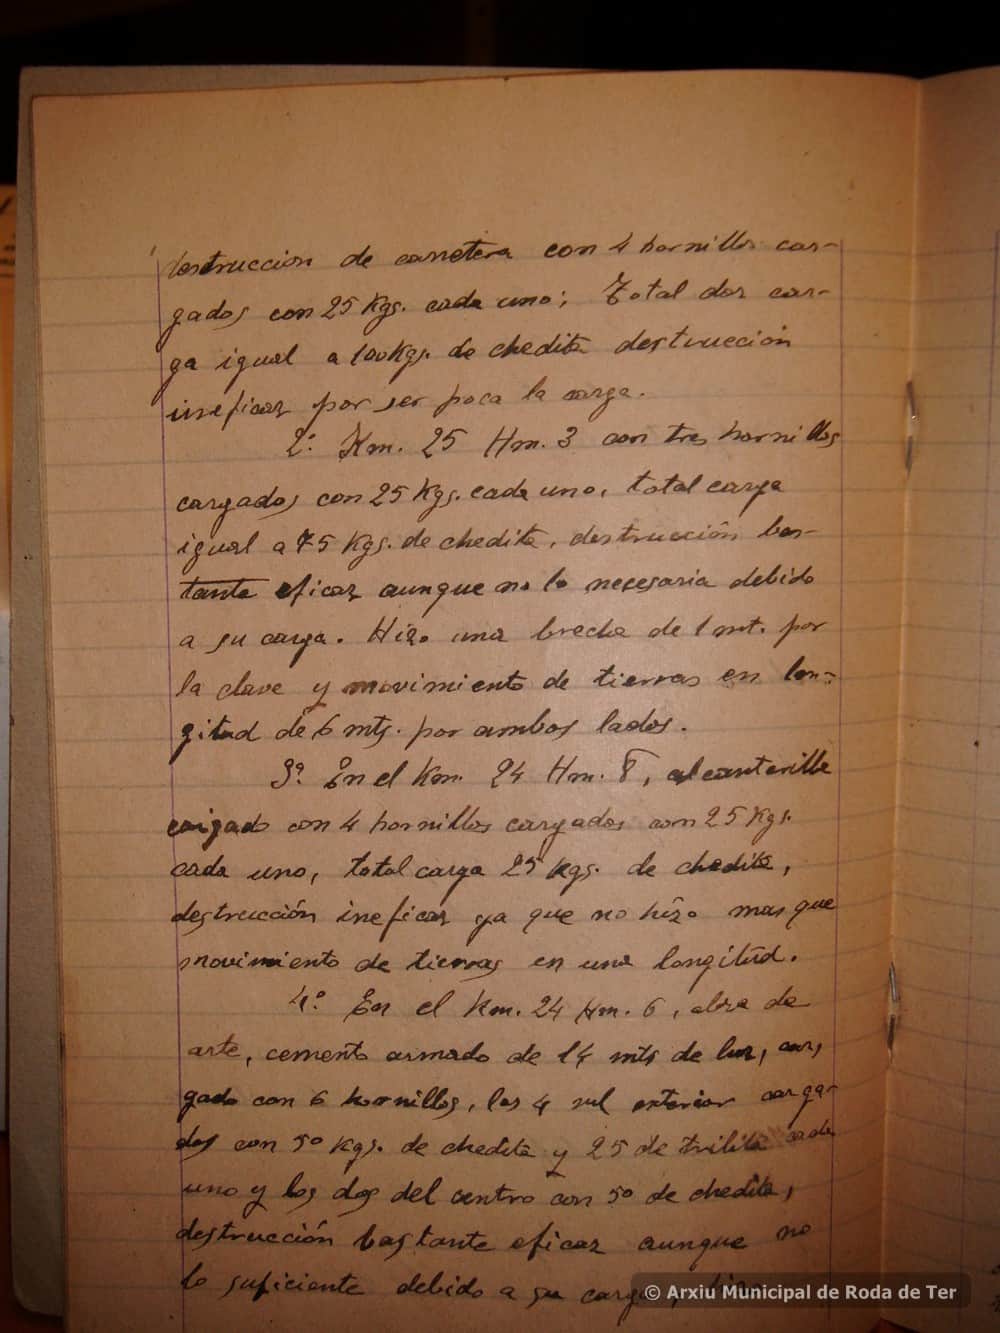 destrucción de carretera con 4 hornillos car-
gados con 25 Kgs. cada uno; Total dos car-
ga igual a 100 Kgs. de chedita destrucción
ineficaz por ser poca la carga.
2º Km. 25 Hm. 3 con tres hornillos
cargados con 25 Kgs. cada uno, total carga
igual a 75 Kgs. de chedita, destrucción bas-
tante eficaz aunque no lo necesaria debido
a su carga. Hizo una brecha de 1 mt. por
la clave y movimiento de tierras en lon-
gitud de 6 mts. por ambos lados.
3º En el Km. 24 Hm. 8, alcantarilla
cargado con 4 hornillos cargados con 25 Kgs.
cada uno, total carga 25 kgs. de chedita,
destrucción ineficaz ya que no hizo mas que
movimiento de tierras en una longitud.
4º En el Km. 24 Hm. 6, obra de
arte, cemento armado de 14 mts de luz, car,
gado con 6 hornillos, los 4 del exterior carga-
dos con 50 kgs. de chedita y 25 de trilita cada
uno y los dos del centro con 50 de chedita,
destrucción bastante eficaz aunque no
lo suficiente debido a su carga,
© Arxiu Municipal de Roda de Ter